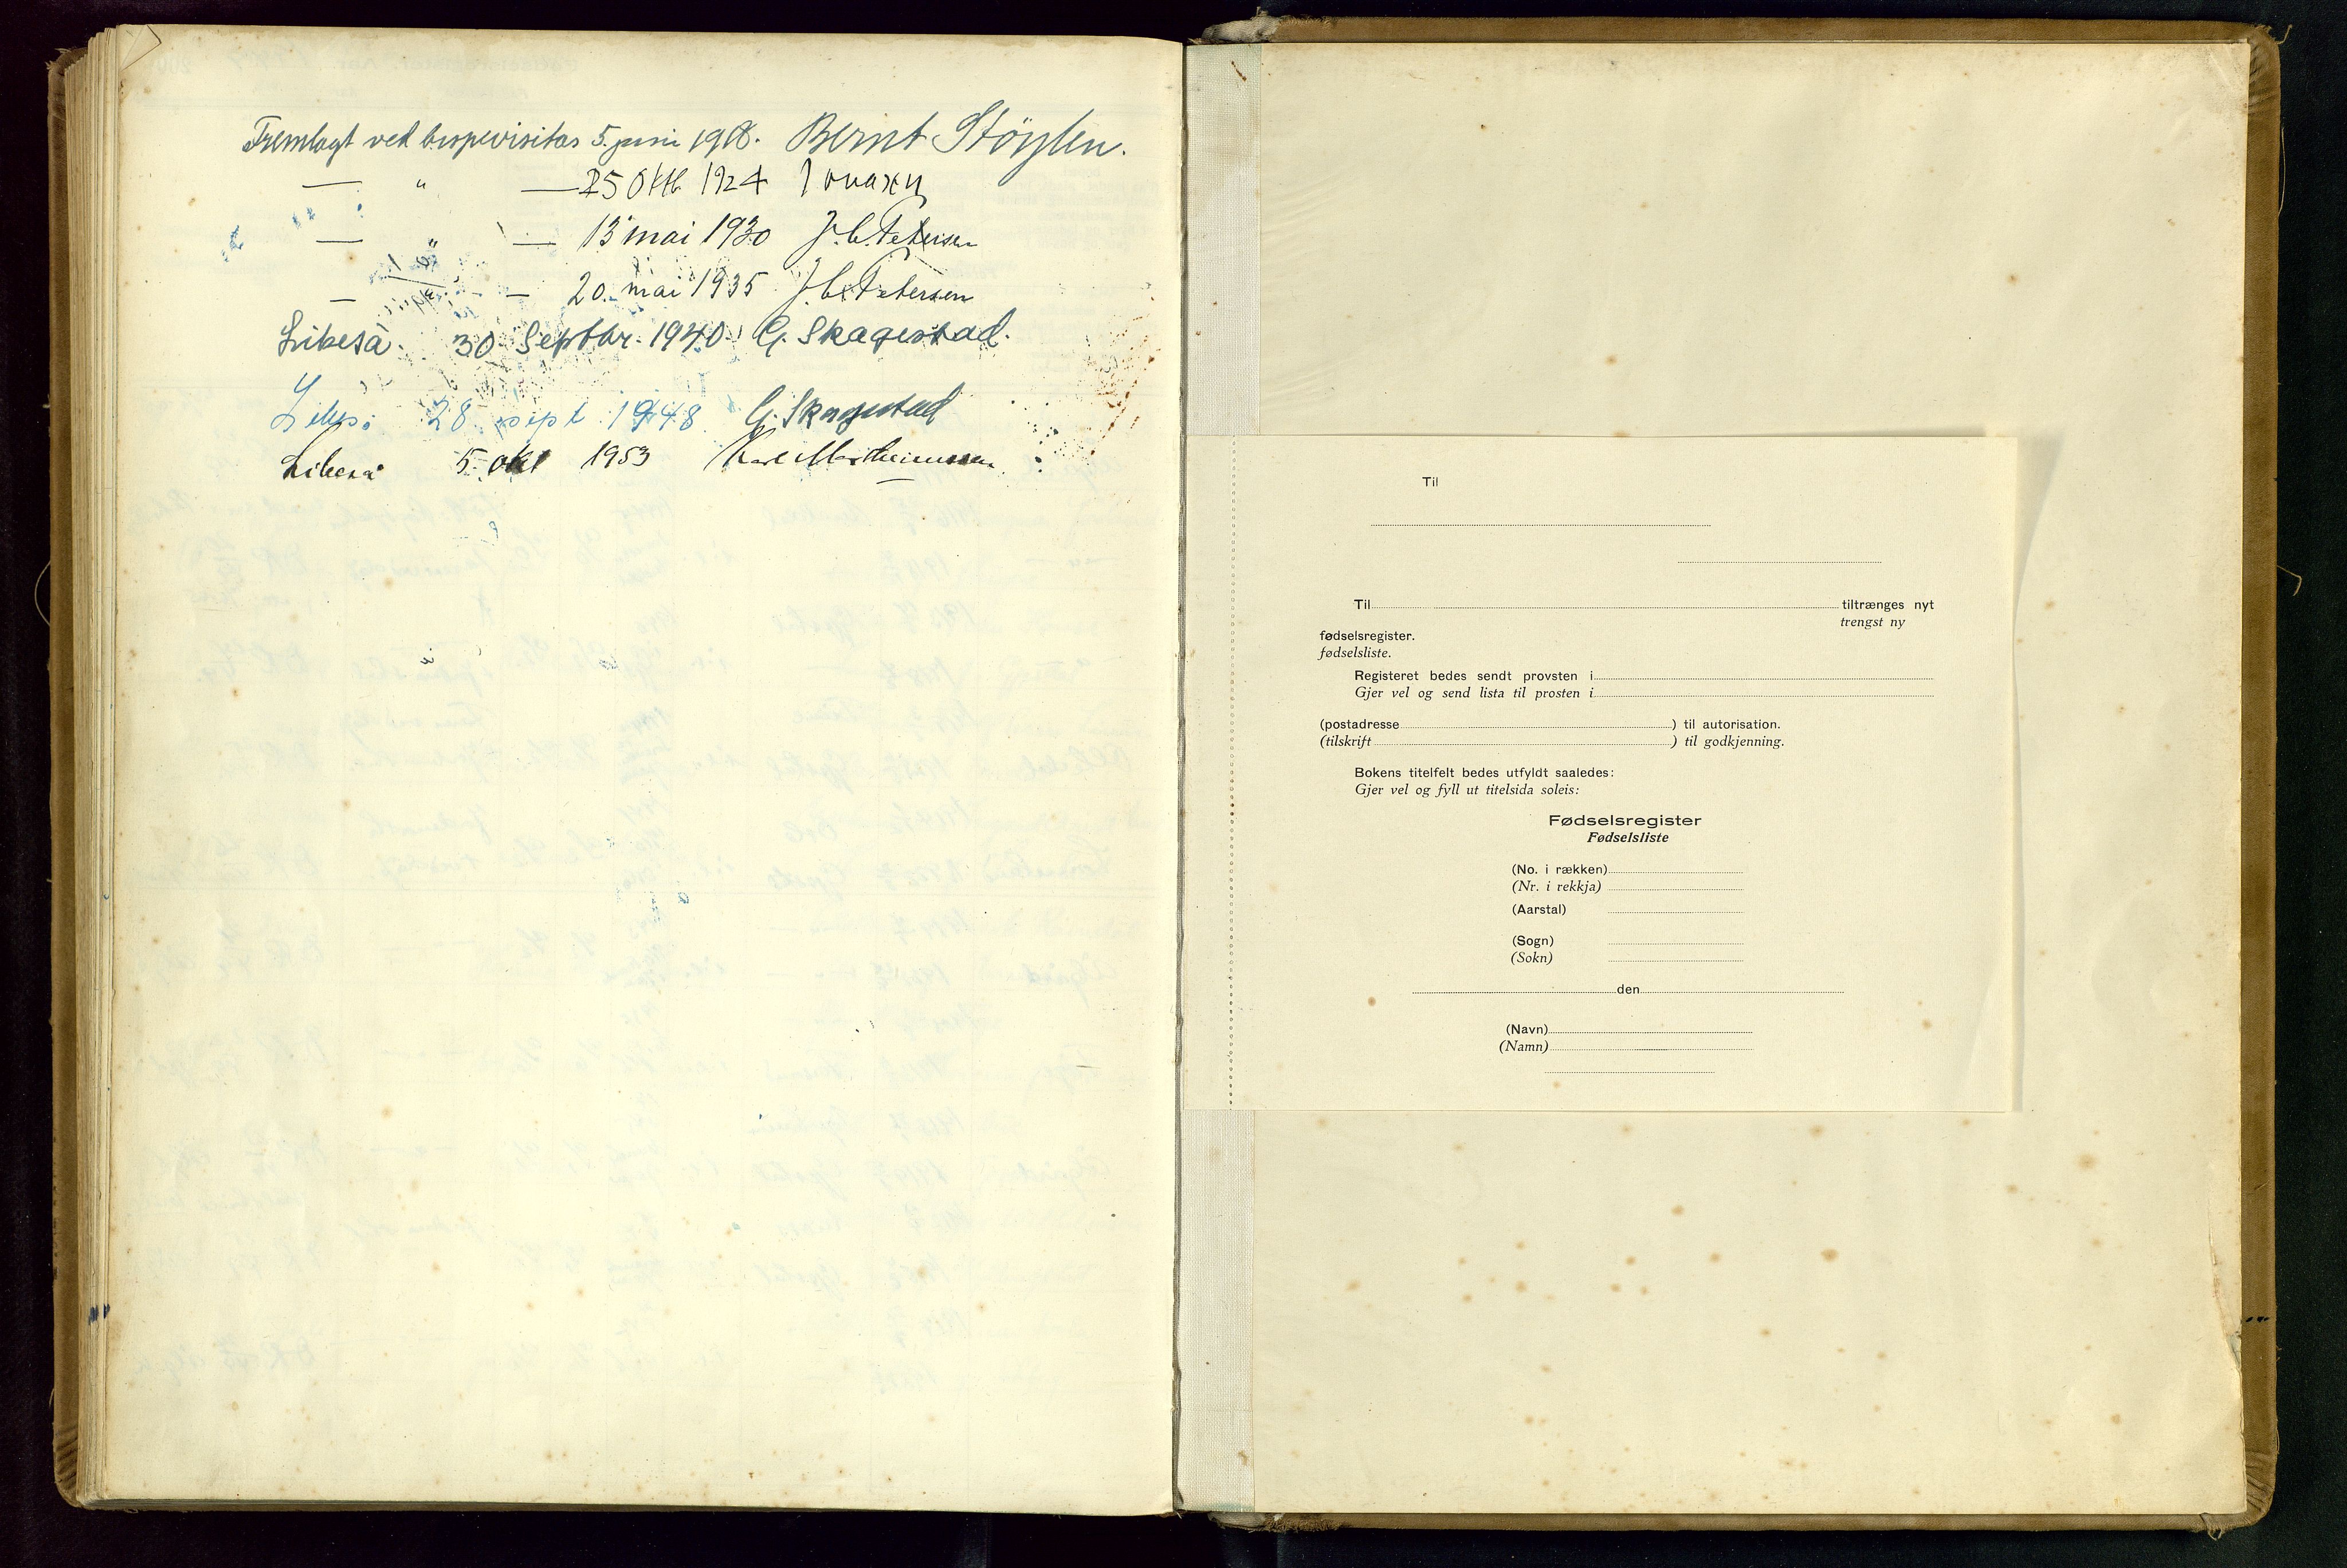 Fremlagt ved bispevisitas 5. juni 1918. Bernt Støylen.
— " — 25 Oktb 1924
— " — 13 mai 1930 J. C. Petersen
— — 20. mai 1935 J. C. Petersen
Likeså 30 Septbr. 1940. G. Skagestad.
28 sept 1948 G. Skagestad
Likeså 5. okt 1953 Karl Marthinussen
Til
Til tiltrænges nyt
trengst ny
fødselsregister.
fødselsliste.
Registeret bedes sendt provsten i
Gjer vel og send lista til prosten i
(postadresse ) til autorisation.
(tilskrift ) til godkjenning.
Bokens titelfelt bedes utfyldt saaledes:
Gjer vel og fyll ut titelsida soleis:
Fødselsregister
Fødselsliste
(No. i rækken)
(Nr. i rekkja)
(Aarstal)
(Sogn)
(Sokn)
den
(Navn)
(Namn)